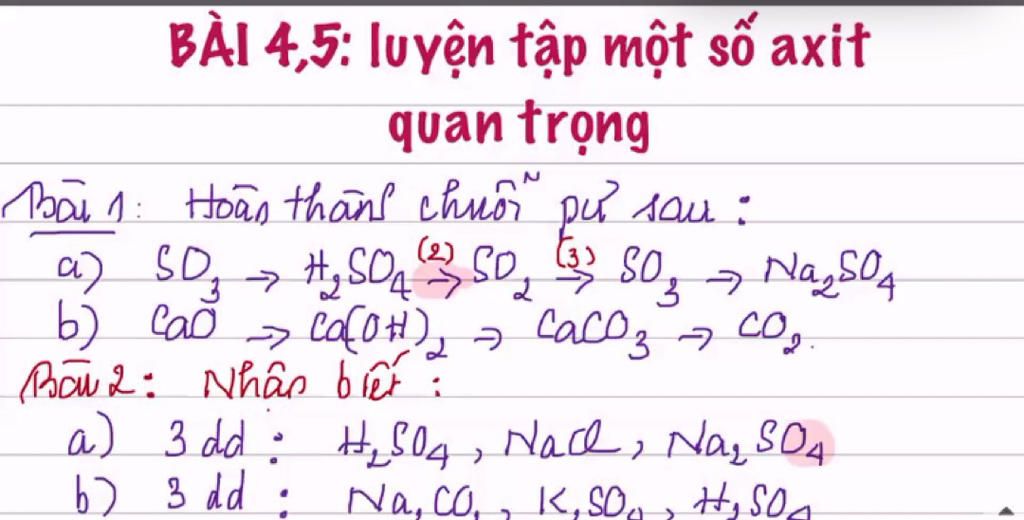 BÀI 4,5: luyện tập một số axit
quan trọng
Bài 1: Hoàn thành chuỗi pư sau :
a) SO₃ → H₂SO₄ (2)→ SO₂ (3)→ SO₃ → Na₂SO₄
b) CaO → Ca(OH)₂ → CaCO₃ → CO₂.
Bài 2: Nhận biết :
a) 3 dd : H₂SO₄, NaCl, Na₂SO₄
b) 3 dd : Na₂CO₃, K₂SO₄, H₂SO₄